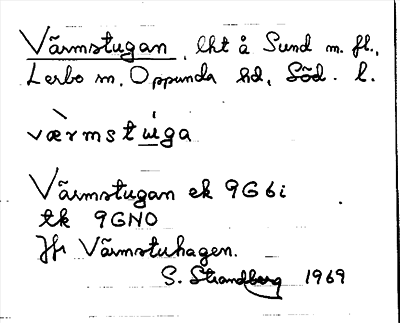 Värmstugan, lht å Sund m. fl.,
Lerbo sn, Oppunda hd, Söd. l.
væ̀rmstúga
Värmstugan ek 9G6i
tk 9GNO
Jfr Värmstuhagen.
S. Strandberg 1969